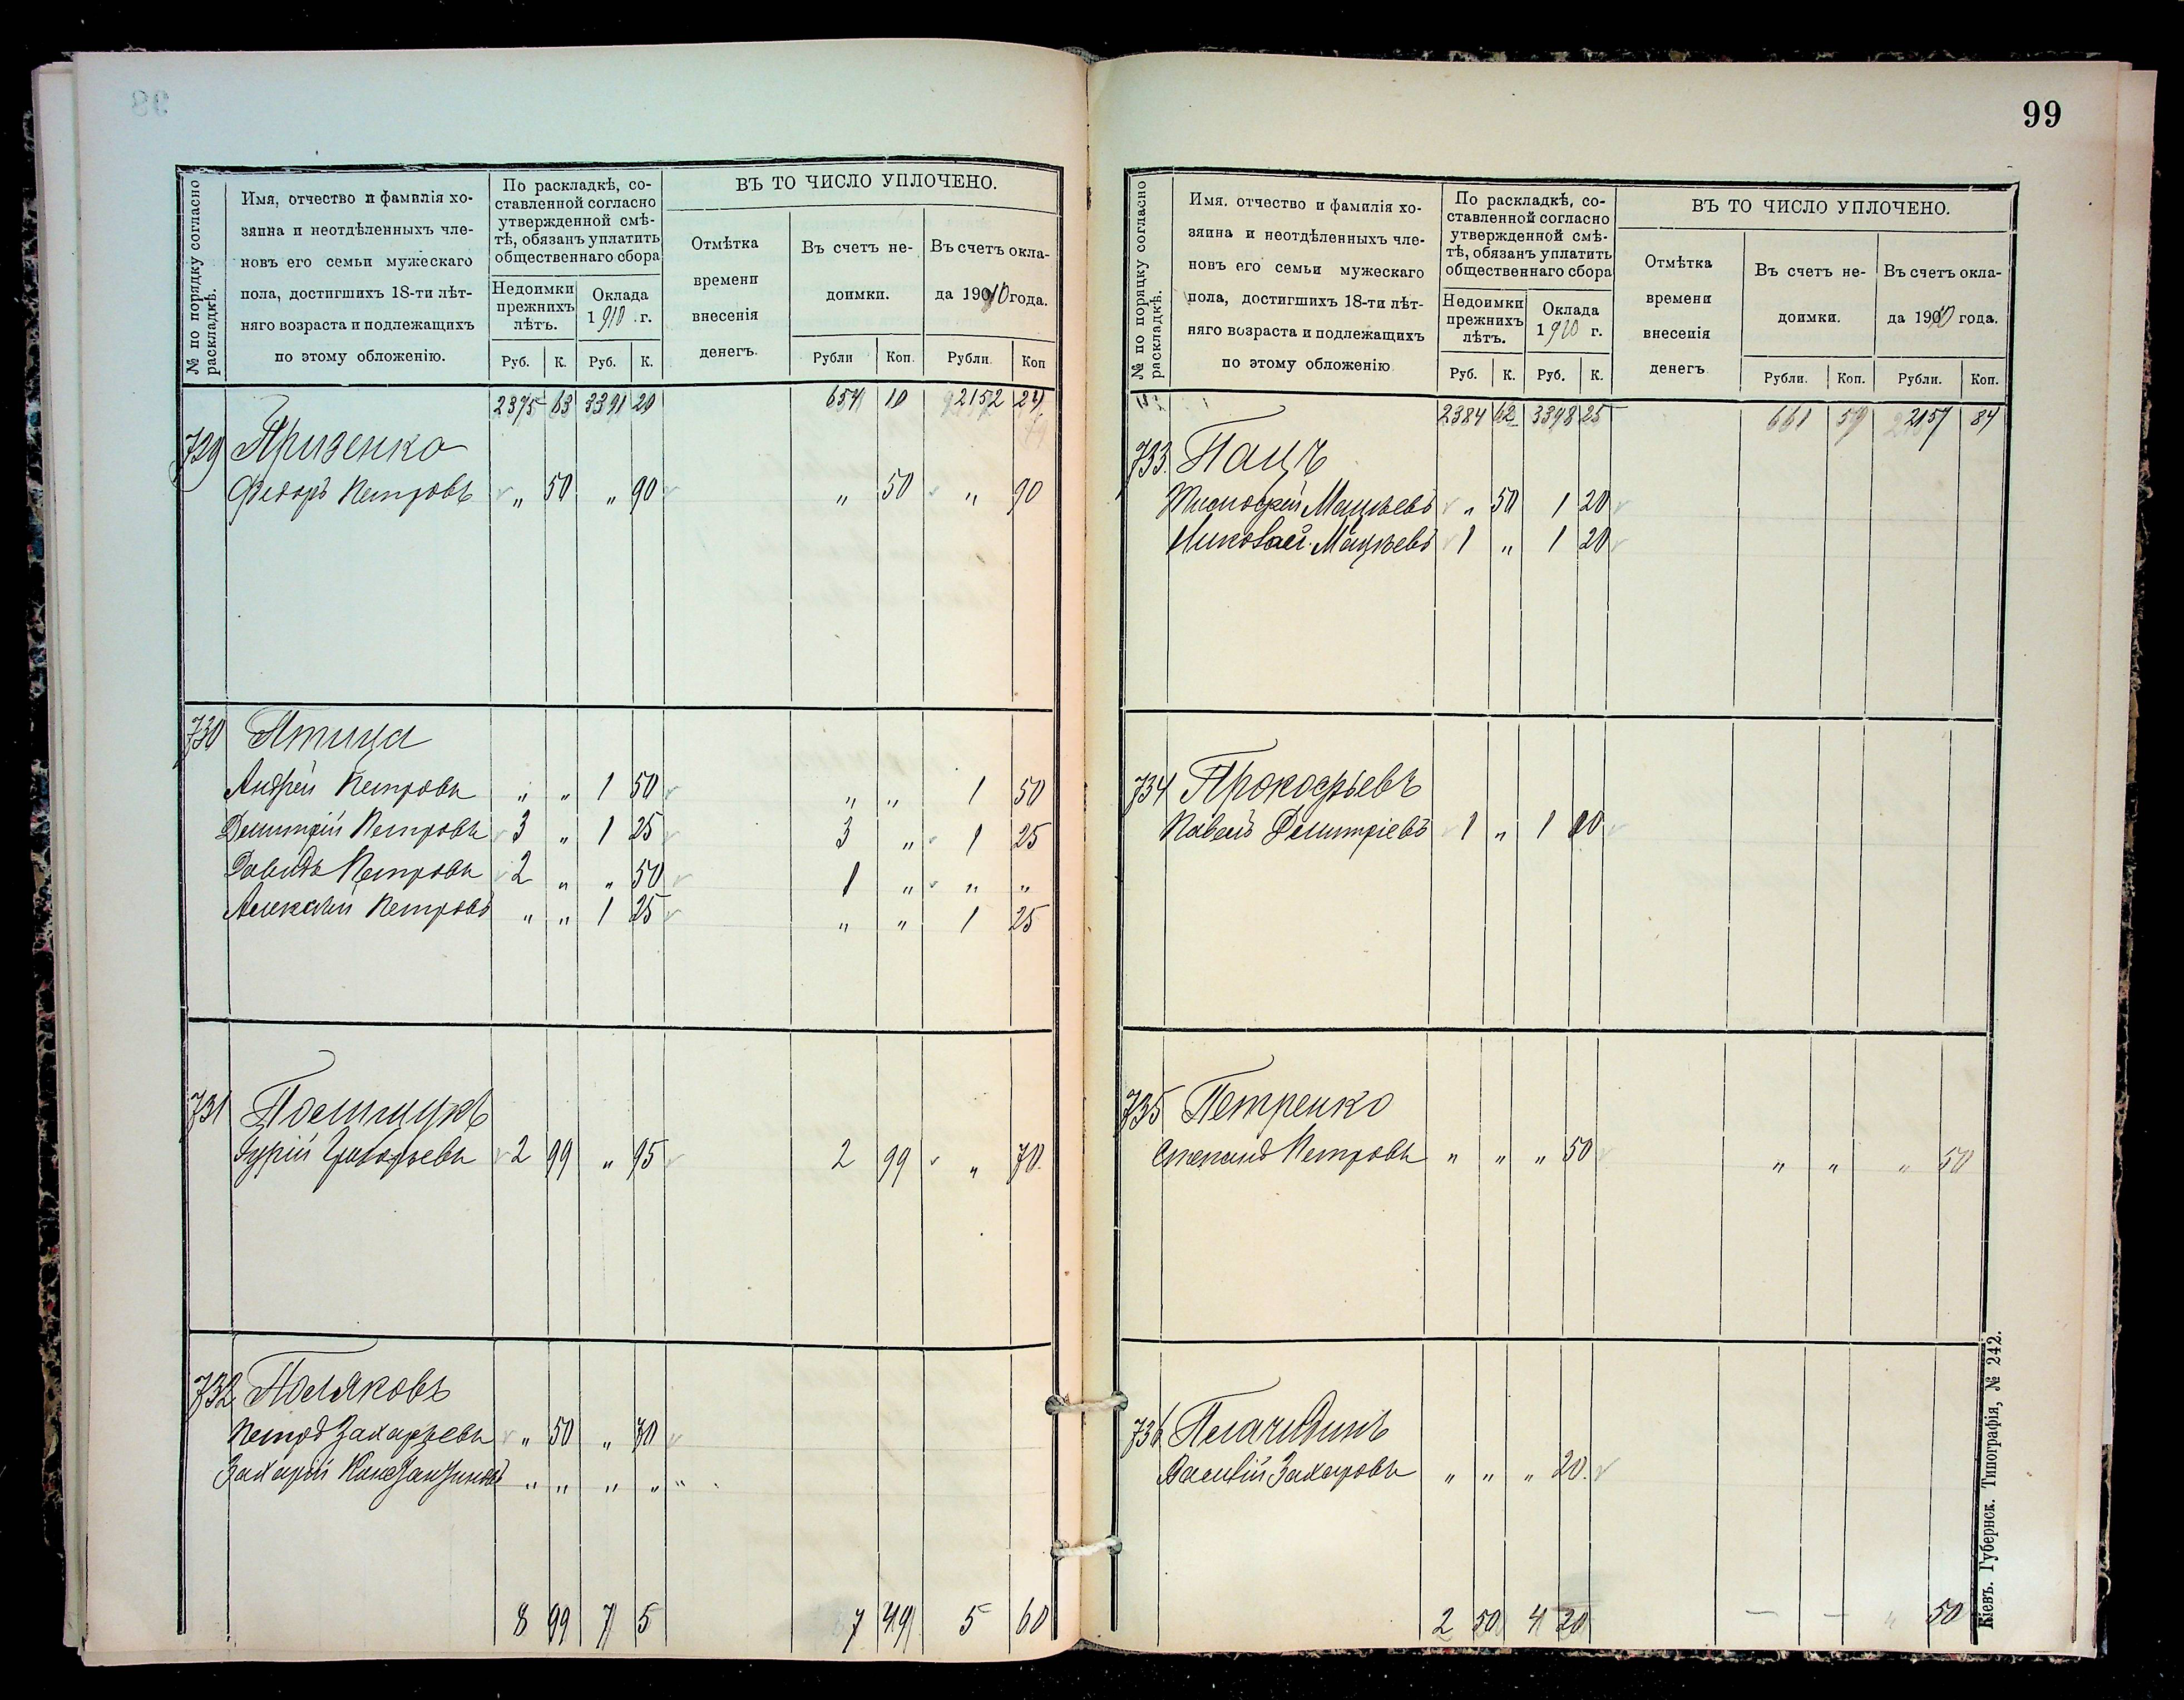 99
№ по порядку согласно раскладкѣ.
Имя, отчество и фамилія хо-
зяина и неотдѣленныхъ чле-
новъ его семьи мужескаго
пола, достигшихъ 18-ти лѣт-
няго возраста и подлежащихъ
по этому обложенію.
По раскладкѣ, со-
ставленной согласно
утвержденной смѣ-
тѣ, обязанъ уплатить
общественнаго сбора
Недоимки прежнихъ лѣтъ.
Оклада 1910 г.
Руб. К. Руб. К.
ВЪ ТО ЧИСЛО УПЛОЧЕНО.
Отмѣтка времени внесенія денегъ.
Въ счетъ не-
доимки.
Въ счетъ окла-
да 1910 года.
Рубли Коп. Рубли. Коп
2375 63 3391 20 654 10 2152 24
729 Призенко
Федоръ Петровъ „ 50 „ 90 „ 50 „ 90
730 Птица
Андрей Петровъ „ „ 1 50 „ „ 1 50
Дмитрій Петровъ 3 „ 1 25 3 „ 1 25
Давидъ Петровъ 2 „ „ 50 1 „ „ „
Алексѣй Петровъ „ „ 1 25 „ „ 1 25
731
Григорьевъ 2 99 „ 95 2 99 „ 70
732 Поляковъ
Петръ Захарьевъ „ 50 „ 70
Захарій Константиновъ „ „ „ „ „
8 99 7 5 7 49 5 60
№ по порядку согласно раскладкѣ.
Имя, отчество и фамилія хо-
зяина и неотдѣленныхъ чле-
новъ его семьи мужескаго
пола, достигшихъ 18-ти лѣт-
няго возраста и подлежащихъ
по этому обложенію
По раскладкѣ, со-
ставленной согласно
утвержденной смѣ-
тѣ, обязанъ уплатить
общественнаго сбора
Недоимки прежнихъ лѣтъ.
Оклада 1910 г.
Руб. К. Руб. К.
ВЪ ТО ЧИСЛО УПЛОЧЕНО.
Отмѣтка времени внесенія денегъ
Въ счетъ не-
доимки.
Въ счетъ окла-
да 1910 года.
Рубли. Коп. Рубли. Коп.
2384 62 3398 25 661 59 2157 84
733. Пацъ
Тимофей „ 50 1 20
Николай 1 „ 1 20
734 Прокофьевъ
Павелъ Дмитріевъ 1 „ 1
735 Петренко
Степанъ Петровъ „ „ „ 50 „ „ „ 50
736
Василій Захаровъ „ „ „ 20.
2 50 4 20 — — „ 50
Кіевъ. Губернск. Типографія, № 242.